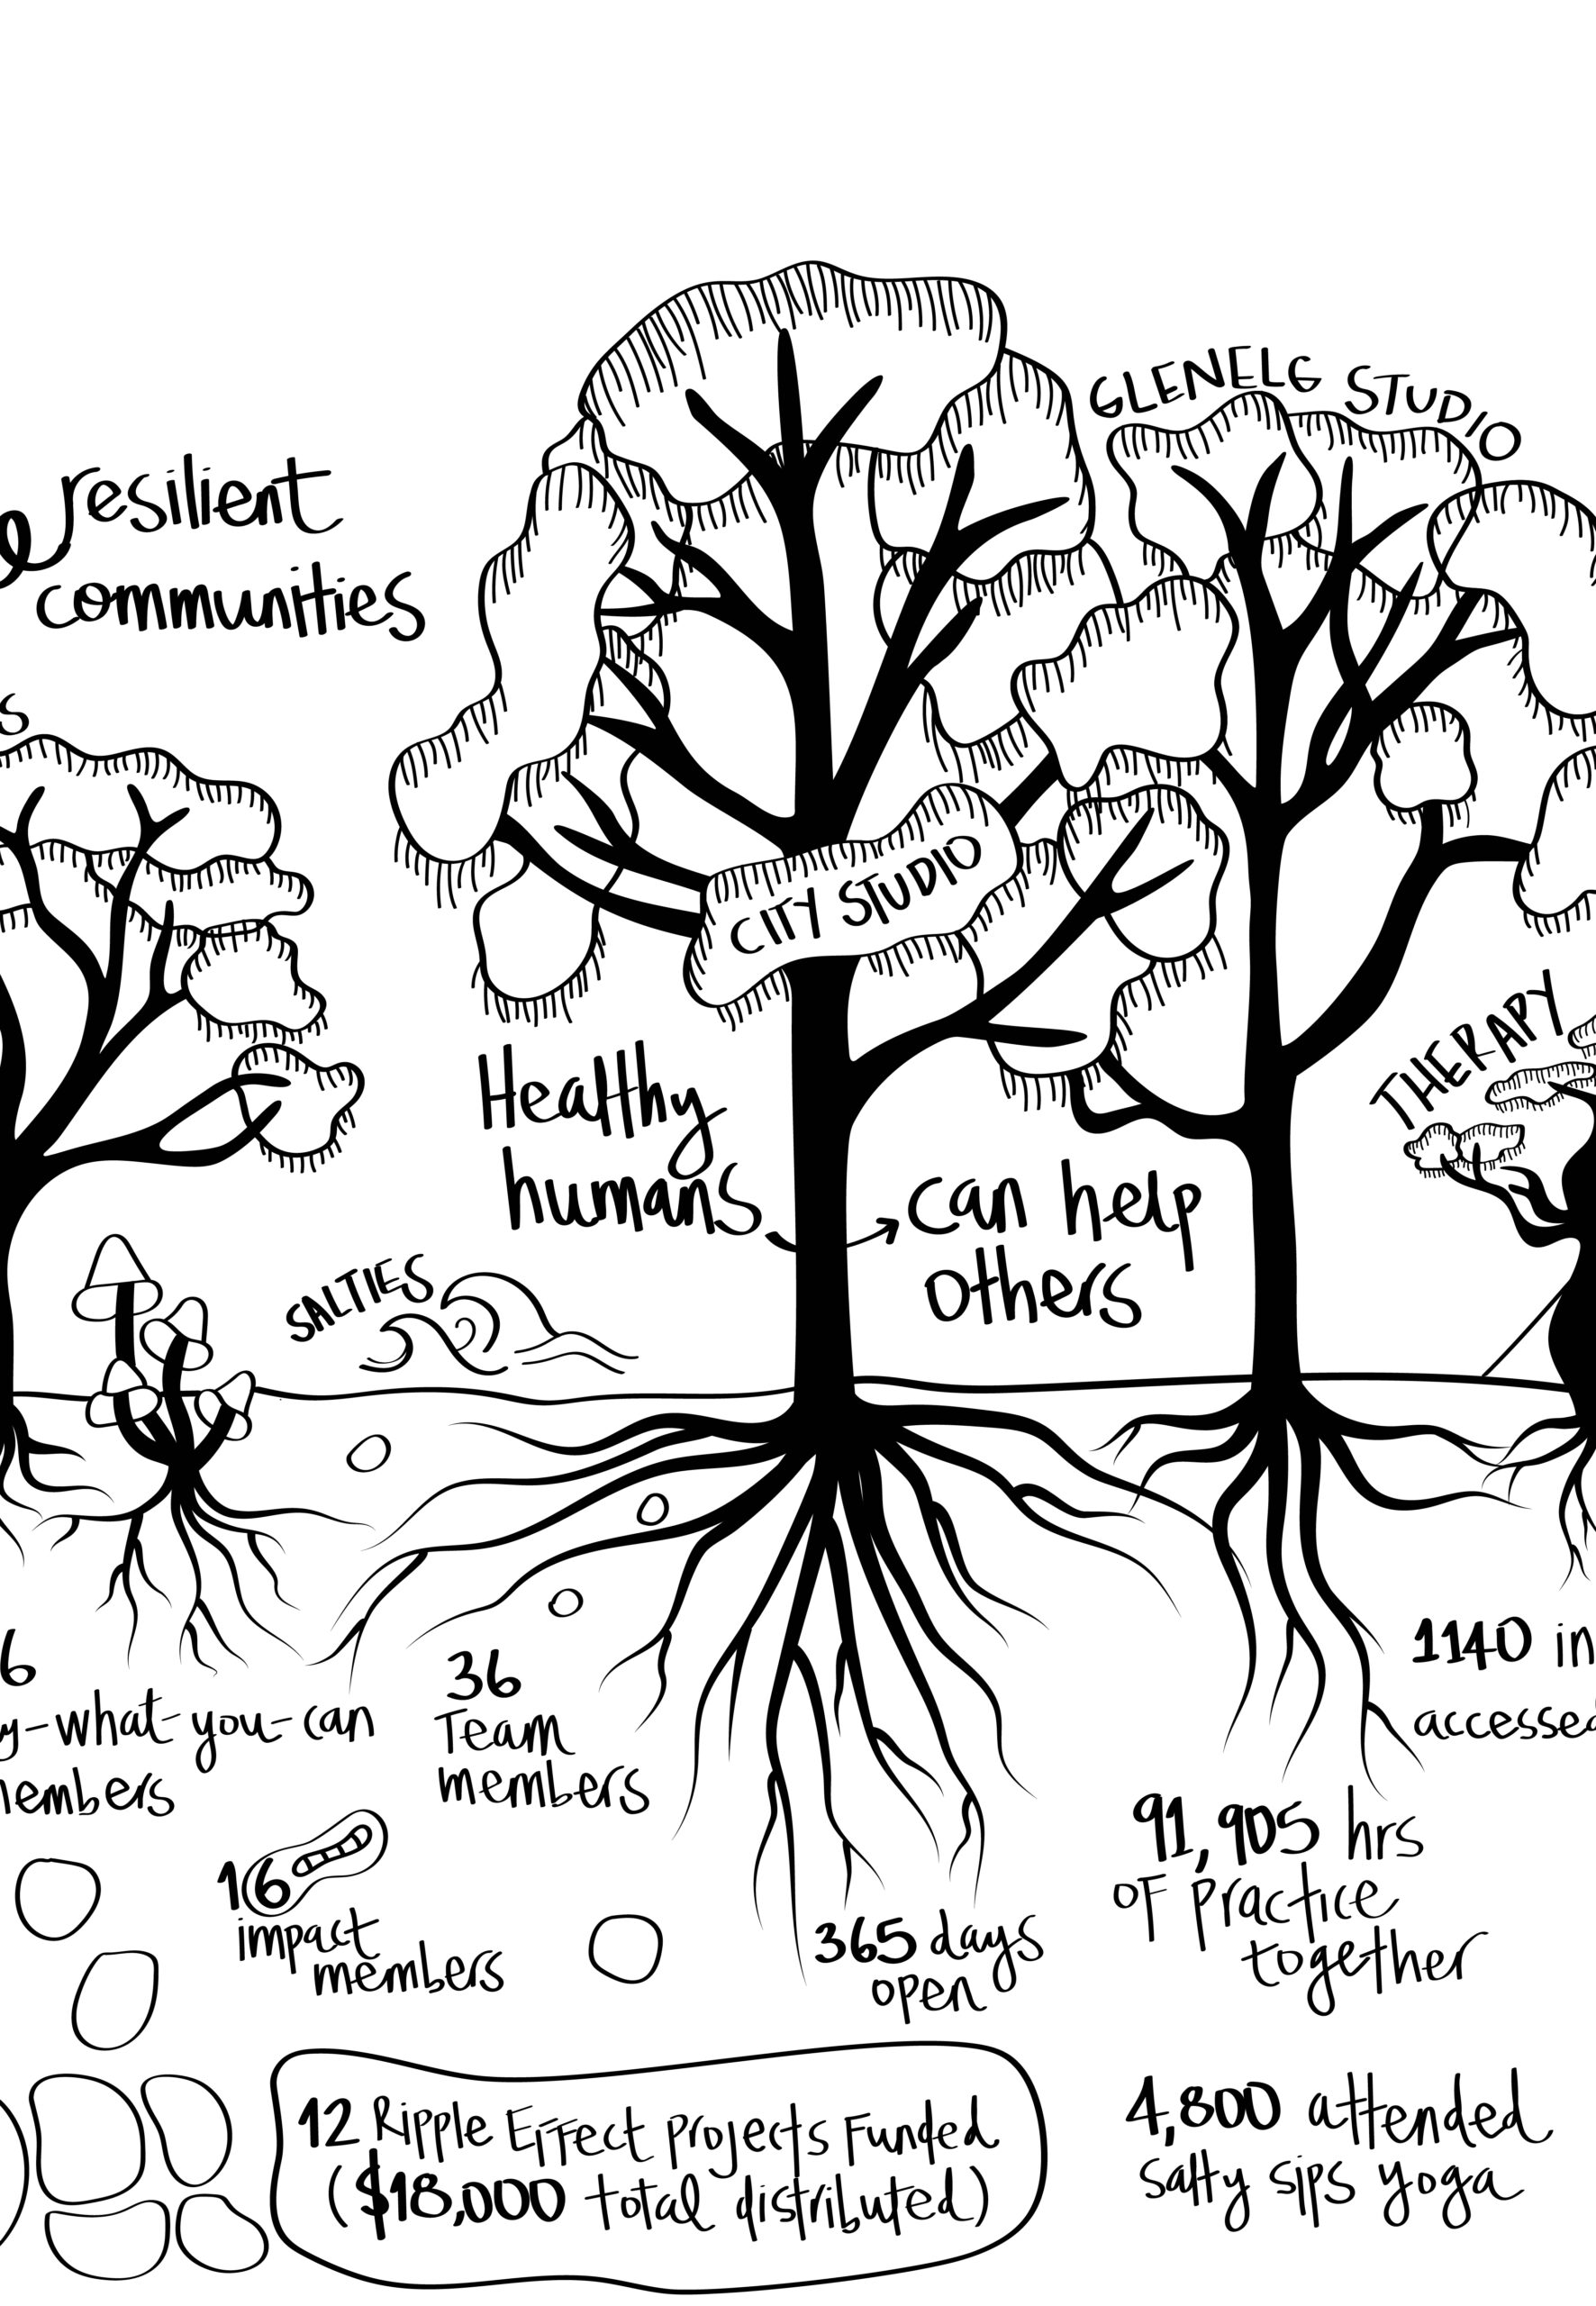 GLENELG STUDIO
resilient
communities
s
CITY STUDIO
THERAPY
Healthy
humans
can help
others
SALTIES
6
y-what-you-can
members
36
Team
members
1140 in
accessed
16
impact
members
91,905 hrs
of practice
together
365 days
open
12 Ripple Effect Projects Funded
($18,000 total distributed)
4,800 attended
salty sips yoga